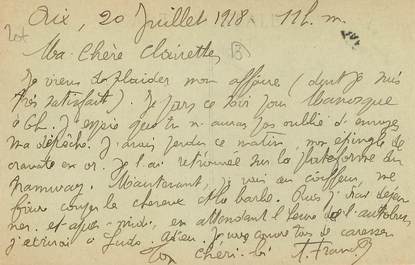 Aix, 20 Juillet 1918. 11h. m.
Ma Chère Clairette,
Je viens de plaider mon affaire (dont je suis
très satisfait). Je pars ce soir pour Manosque
à 6h. J'espère que tu n'auras pas oublié d'envoyer
ma dépêche. J'avais perdu ce matin, mon épingle de
cravate en or. Je l'ai retrouvée sur la plateforme du
tramway. Maintenant, je vais au coiffeur, me
faire couper les cheveux et la barbe. Puis j'irai déjeu
ner. et après-midi, en attendant l'heure de l'autobus
j'écrirai à Ludo. Adieu. Je t'envoie un tas de caresses
Ton chéri.